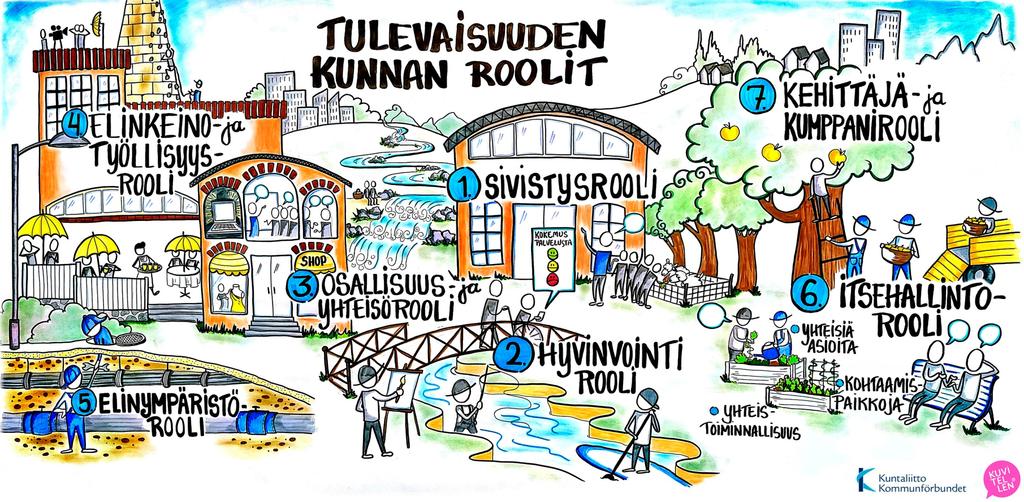 TULEVAISUUDEN
KUNNAN ROOLIT
4 ELINKEINO- ja
TYÖLLISYYS-
ROOLI
7. KEHITTÄJÄ- ja
KUMPPANIROOLI
1. SIVISTYSROOLI
KOKEMUS
PALVELUSTA
SHOP
3. OSALLISUUS- ja
YHTEISÖROOLI
6. ITSEHALLINTO-
ROOLI
2. HYVINVOINTI
ROOLI
YHTEISIÄ
ASIOITA
KOHTAAMIS-
PAIKKOJA
YHTEIS-
TOIMINNALLISUUS
5. ELINYMPÄRISTÖ-
ROOLI
Kuntaliitto
Kommunförbundet
KUVI
TEL
LEN